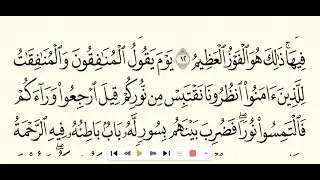 فِيهَا ۚ ذَٰلِكَ هُوَ الْفَوْزُ الْعَظِيمُ ۝١٢ يَوْمَ يَقُولُ الْمُنَافِقُونَ وَالْمُنَافِقَاتُ
لِلَّذِينَ ءَامَنُوا انْظُرُونَا نَقْتَبِسْ مِن نُّورِكُمْ قِيلَ ارْجِعُوا وَرَاءَكُمْ
فَالْتَمِسُوا نُورًا ۖ فَضُرِبَ بَيْنَهُم بِسُورٍ لَّهُ بَابٌ بَاطِنُهُ فِيهِ الرَّحْمَةُ